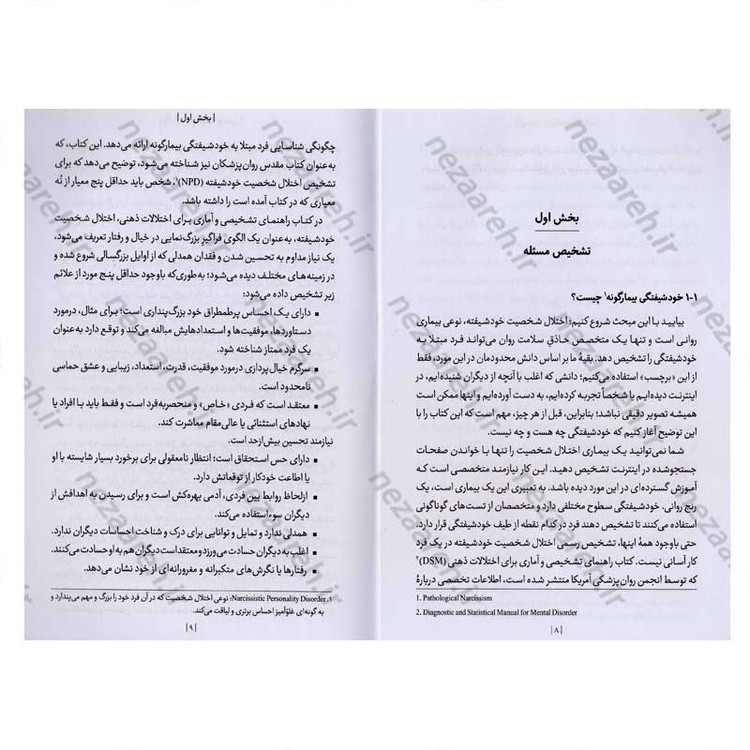 بخش اول
تشخیص مسئله
۱-۱ خودشیفتگی بیمارگونه۱ چیست؟
بیایید با این مبحث شروع کنیم: اختلال شخصیت خودشیفته، نوعی بیماری
روانی است و تنها یک متخصص حاذق سلامت روان می‌تواند فرد مبتلا به
خودشیفتگی را تشخیص دهد. بقیهٔ ما بر اساس دانش محدودمان در این مورد، فقط
از این «برچسب» استفاده می‌کنیم؛ دانشی که اغلب با آنچه از دیگران شنیده‌ایم، در
اینترنت دیده‌ایم یا شخصاً تجربه کرده‌ایم، به دست آورده‌ایم و اینها ممکن است
همیشه تصویر دقیقی نباشد؛ بنابراین، قبل از هر چیز، مهم است که این کتاب را با
این توضیح آغاز کنیم که خودشیفتگی چه هست و چه نیست.
شما نمی‌توانید یک بیماری اختلال شخصیت را تنها با خواندن صفحات
جستجوشده در اینترنت تشخیص دهید. این کار نیازمند متخصصی است که
آموزش گسترده‌ای در این مورد دیده باشد. به تعبیری این یک بیماری است، یک
رنج روانی. خودشیفتگی سطوح مختلفی دارد و متخصصان از تست‌های گوناگونی
استفاده می‌کنند تا تشخیص دهند فرد در کدام نقطه از طیف خودشیفتگی قرار دارد.
حتی باوجود همهٔ اینها، تشخیص رسمی اختلال شخصیت خودشیفته در یک فرد
کار آسانی نیست. کتاب راهنمای تشخیصی و آماری برای اختلالات ذهنی (DSM)۲
که توسط انجمن روان‌پزشکی آمریکا منتشر شده است، اطلاعات تخصصی دربارهٔ
1. Pathological Narcissism
2. Diagnostic and Statistical Manual for Mental Disorder
|۸|
|بخش اول|
چگونگی شناسایی فرد مبتلا به خودشیفتگی بیمارگونه ارائه می‌دهد. این کتاب، که
به‌عنوان کتاب مقدس روان‌پزشکان نیز شناخته می‌شود، توضیح می‌دهد که برای
تشخیص اختلال شخصیت خودشیفته (NPD)۱، شخص باید حداقل پنج معیار از نُه
معیاری که در کتاب آمده است را داشته باشد.
در کتاب راهنمای تشخیصی و آماری برای اختلالات ذهنی، اختلال شخصیت
خودشیفته، به‌عنوان یک الگوی فراگیرِ بزرگ‌نمایی در خیال و رفتار تعریف می‌شود،
یک نیاز مداوم به تحسین شدن و فقدان همدلی که از اوایل بزرگسالی شروع شده و
در زمینه‌های مختلف دیده می‌شود؛ به‌طوری‌که باوجود حداقل پنج مورد از علائم
زیر تشخیص داده می‌شود:
▪ دارای یک احساس پرطمطراق خود بزرگ‌پنداری است؛ برای مثال، درمورد
دستاوردها، موفقیت‌ها و استعدادهایش مبالغه می‌کند و توقع دارد به‌عنوان
یک فرد ممتاز شناخته شود.
▪ سرگرم خیال‌پردازی درمورد موفقیت، قدرت، استعداد، زیبایی و عشق حماسی
نامحدود است.
▪ معتقد است که فردی «خاص» و منحصربه‌فرد است و فقط باید با افراد یا
نهادهای استثنائی یا عالی‌مقام معاشرت کند.
نیازمند تحسین بیش‌ازحد است.
▪ دارای حس استحقاق است؛ انتظار نامعقولی برای برخورد بسیار شایسته با او
یا اطاعت خودکار از توقعاتش دارد.
▪ ازلحاظ روابط بین فردی، آدمی بهره‌کش است و برای رسیدن به اهدافش از
دیگران سوءاستفاده می‌کند.
▪ همدلی ندارد و تمایل و توانایی برای درک و شناخت احساسات دیگران ندارد.
▪ اغلب به دیگران حسادت می‌ورزد و معتقد است دیگران هم به او حسادت می‌کنند.
▪ رفتارها یا نگرش‌های متکبرانه و مغرورانه‌ای از خود نشان می‌دهد.
۱. Narcissistic Personality Disorder: نوعی اختلال شخصیت که در آن فرد خود را بزرگ و مهم می‌پندارد و
به گونه‌ای غلوآمیز احساس برتری و لیاقت می‌کند.
|۹|
nezaareh.ir